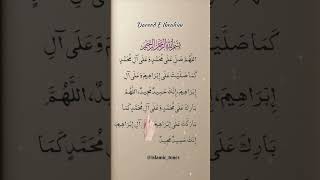 Durood E Ibrahim
بِسْمِ اللَّهِ الرَّحْمَٰنِ الرَّحِيمِ
اللَّهُمَّ صَلِّ عَلَى مُحَمَّدٍ وَعَلَى آلِ مُحَمَّدٍ
كَمَا صَلَّيْتَ عَلَى إِبْرَاهِيمَ وَعَلَى آلِ
إِبْرَاهِيمَ، إِنَّكَ حَمِيدٌ مَجِيدٌ، اللَّهُمَّ
بَارِكْ عَلَى مُحَمَّدٍ وَعَلَى آلِ مُحَمَّدٍ كَمَا
بَارَكْتَ عَلَى إِبْرَاهِيمَ وَعَلَى آلِ إِبْرَاهِيمَ،
إِنَّكَ حَمِيدٌ مَجِيدٌ